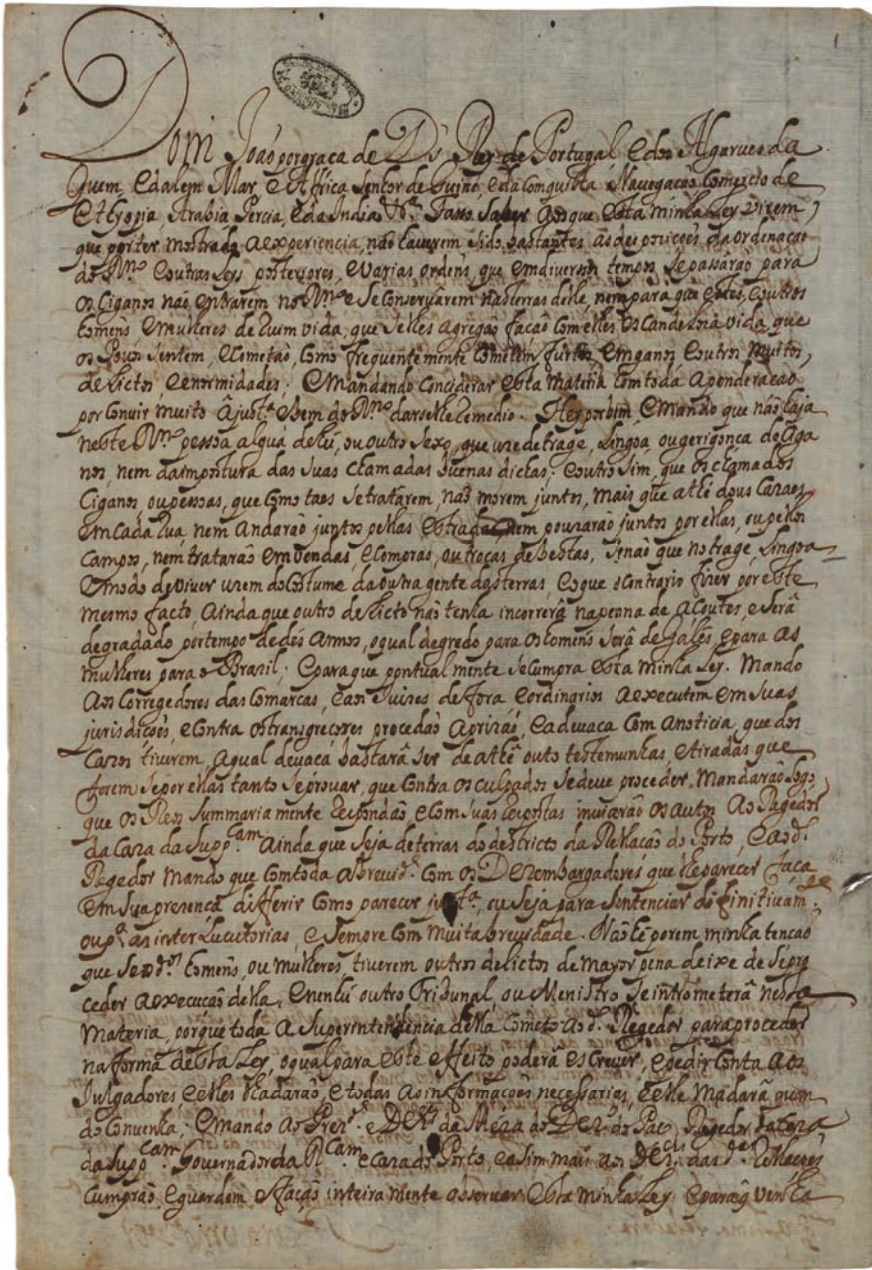 1
Dom João por graça de D.s Rey de Portugal, e dos Algarues da
quem, e dalem Mar, em Africa Senhor de Guiné, e da Conquista, Nauegação Comercio de
Ethyopia, Arabia Percia, e da India &.ª Fasso Saber aos que esta minha Ley virem,
que por ter mostrado a experiencia, não hauerem sido bastantes as desposições da ordenação
do R.no e outras Leys posteriores, e varias ordens, que em diuersos tempos se passárão para
os Ciganos não entrarem no R.no e se conseruárem nas terras delle, nem para que estes, e outros
homens e mulheres de Ruim vida, que se lhes agregão fação com elles os
os Pouos sentem, e cometão, como frequentemente cometem furtos, enganos e outros muitos,
delictos, e enormidades; e Mandando Conciderar esta materia com toda a ponderação
por conuir muito â just.ª e bem do R.no darselhe Remedio. Hey por bem, e Mando que não haja
neste R.no pessoa algúa de hú, ou outro sexo, que uze de trage, Lingoa, ou gerigonça de Ciga
nos, nem da impostura das suas chamadas buenas dichas; e outro sim, que os chamados
Ciganos, ou pessoas, que como taes se tratárem, não morem juntos, mais que athé dous Cazaes
em cada Rua, nem andarão juntos pellas estradas nem pouzarão juntos por ellas, ou pellos
campos, nem tratarão em vendas, e compras, ou trocas de bestas, senão que no trage, Lingoa
e modo de viuer uzem do Costume da outra gente das terras, e o que o contrario fizer por este
mesmo facto, ainda que outro delicto não tenha incorrerá na pena de açoutes, e será
degradado por tempo de dés annos, o qual degredo para os homens será de Galés, e para as
mulheres para o Brazil; e para que pontualmente se cumpra esta minha Ley. Mando
aos Corregedores das Comarcas, e aos Juizes de fora e ordinarios a executem em suas
jurisdições, e contra os transgreçores procedão a prizão, e a deuaça com a noticia, que dos
cazos tiuerem, a qual deuaça bastará ser de athé outo testemunhas, e tiradas que
forem se por ellas tanto se prouar, que contra os culpados se deue proceder, Mandarão logo,
que os Reos summariamente Respondão, e com suas Repostas inuiarão os autos ao Regedor
da Caza da Supp.cam ainda que seja de terras do destricto da Rellação do Porto, e ao d.º
Regedor mando que com toda a breuid.e com os Dezembargadores que lhe parecer faça
em sua presença differir como parecer just.ª, ou seja para sentenciar definitiuam.te
ou p.ª as interLucutorias, e sempre com muita breuidade. Não hé porem minha tenção
que se os d.os homens, ou mulheres, tiuerem outros delictos de mayor pena deixe de se pro
ceder a execução della; e nenhú outro Tribunal, ou Menistro se intrometerá nessa
materia, porque toda a superintendencia della cometo ao d.º Regedor para proceder
na forma desta Ley, o qual para este effeito poderá escreuer, e pedir conta aos
Julgadores, e elles lha darão, e todas as informações necessarias, e elle madará quan
do conuenha; e mando ao Prez.te e DD.es da Meza do Dez.º do Paço, Regedor da Caza
da Supp.cam Gouernador da R.cam e caza do Porto, e asim mais aos Dez.es das d.as Rellações
cumprão e guardem e fação inteiramente obseruar esta minha Ley e para q̃ venha